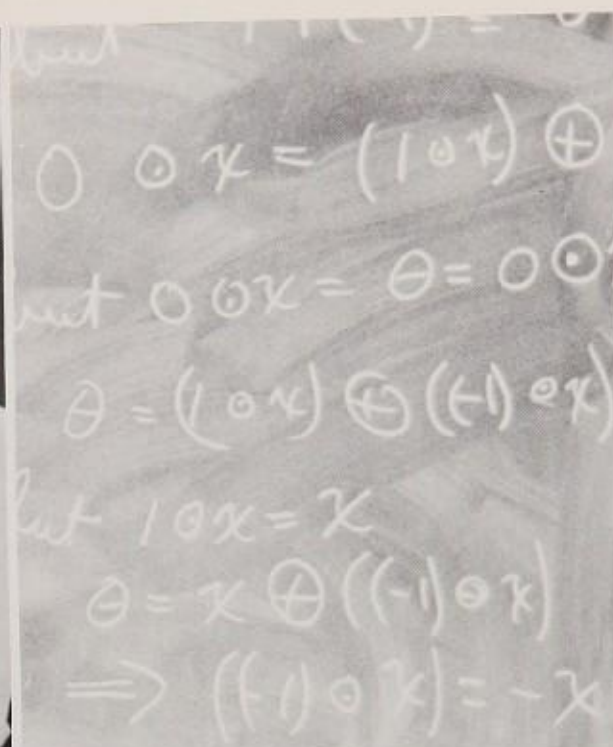 but 1 + (-1) = 0
0 ⊙ x = (1 ⊙ x) ⊕
but 0 ⊙ x = θ = 0 ⊙
θ = (1 ⊙ x) ⊕ ((-1) ⊙ x)
but 1 ⊙ x = x
θ = x ⊕ ((-1) ⊙ x)
⟹ ((-1) ⊙ x) = -x